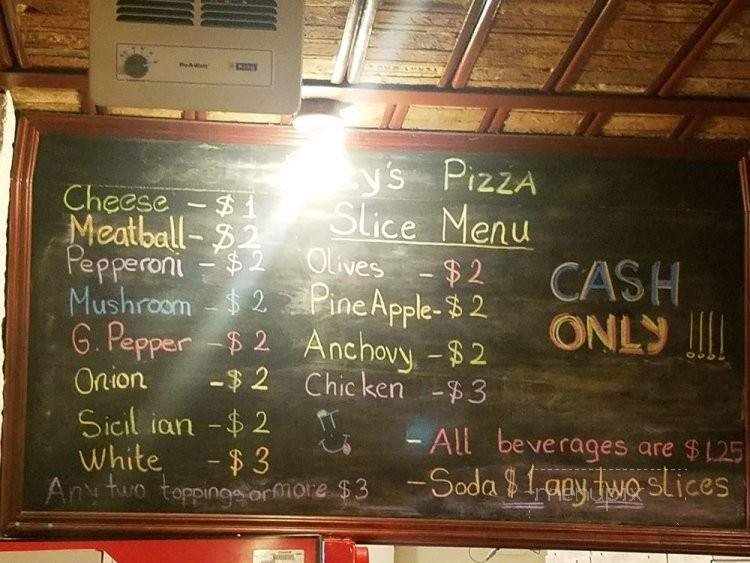 Pizza
Slice Menu
Cheese - $1
Meatball - $2
Pepperoni - $2
Mushroom - $2
G. Pepper - $2
Onion - $2
Sicilian - $2
White - $3
Any two toppings or more $3
Olives - $2
PineApple - $2
Anchovy - $2
Chicken - $3
CASH
ONLY !!!!
- All beverages are $1.25
- Soda $1 any two slices
menupix